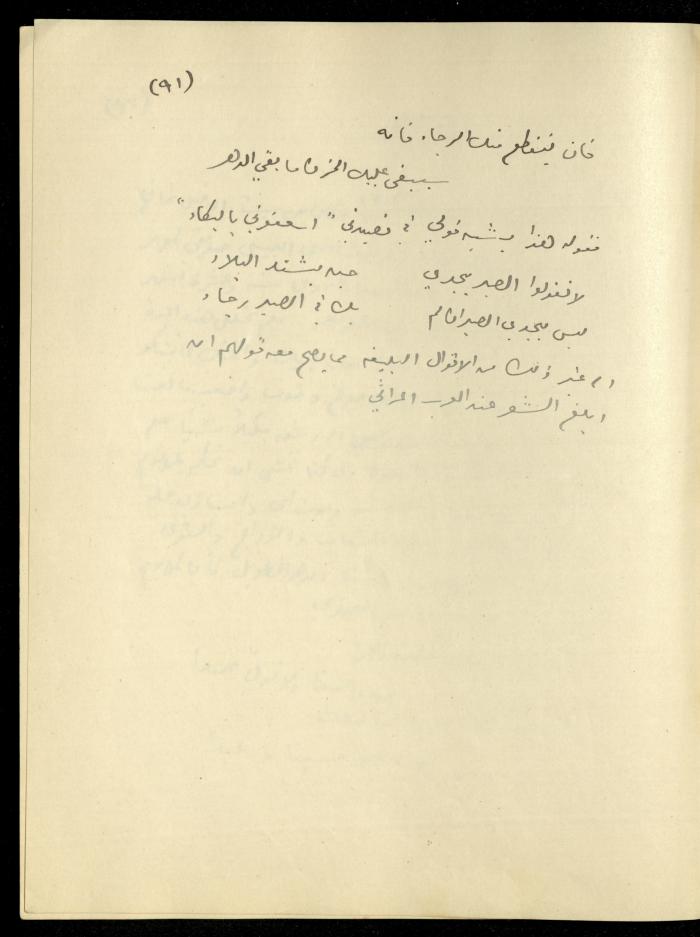 (٩١)
فان ينقطع منك الرجاء فانه
سيبقى عليك الحزن ما بقي الدهر
فقوله هذا يشبه قولي في قصيدتي "اسعفوني بالبكاء"
لا تقولوا الصبر يجدي حينما يشتد البلاء
ليس يجدي الصبر ان لم يك في الصبر رجاء
الى غير ذلك من الاقوال البليغة مما يصح معه قولهم ان
ابلغ الشعر عند العرب المراثي